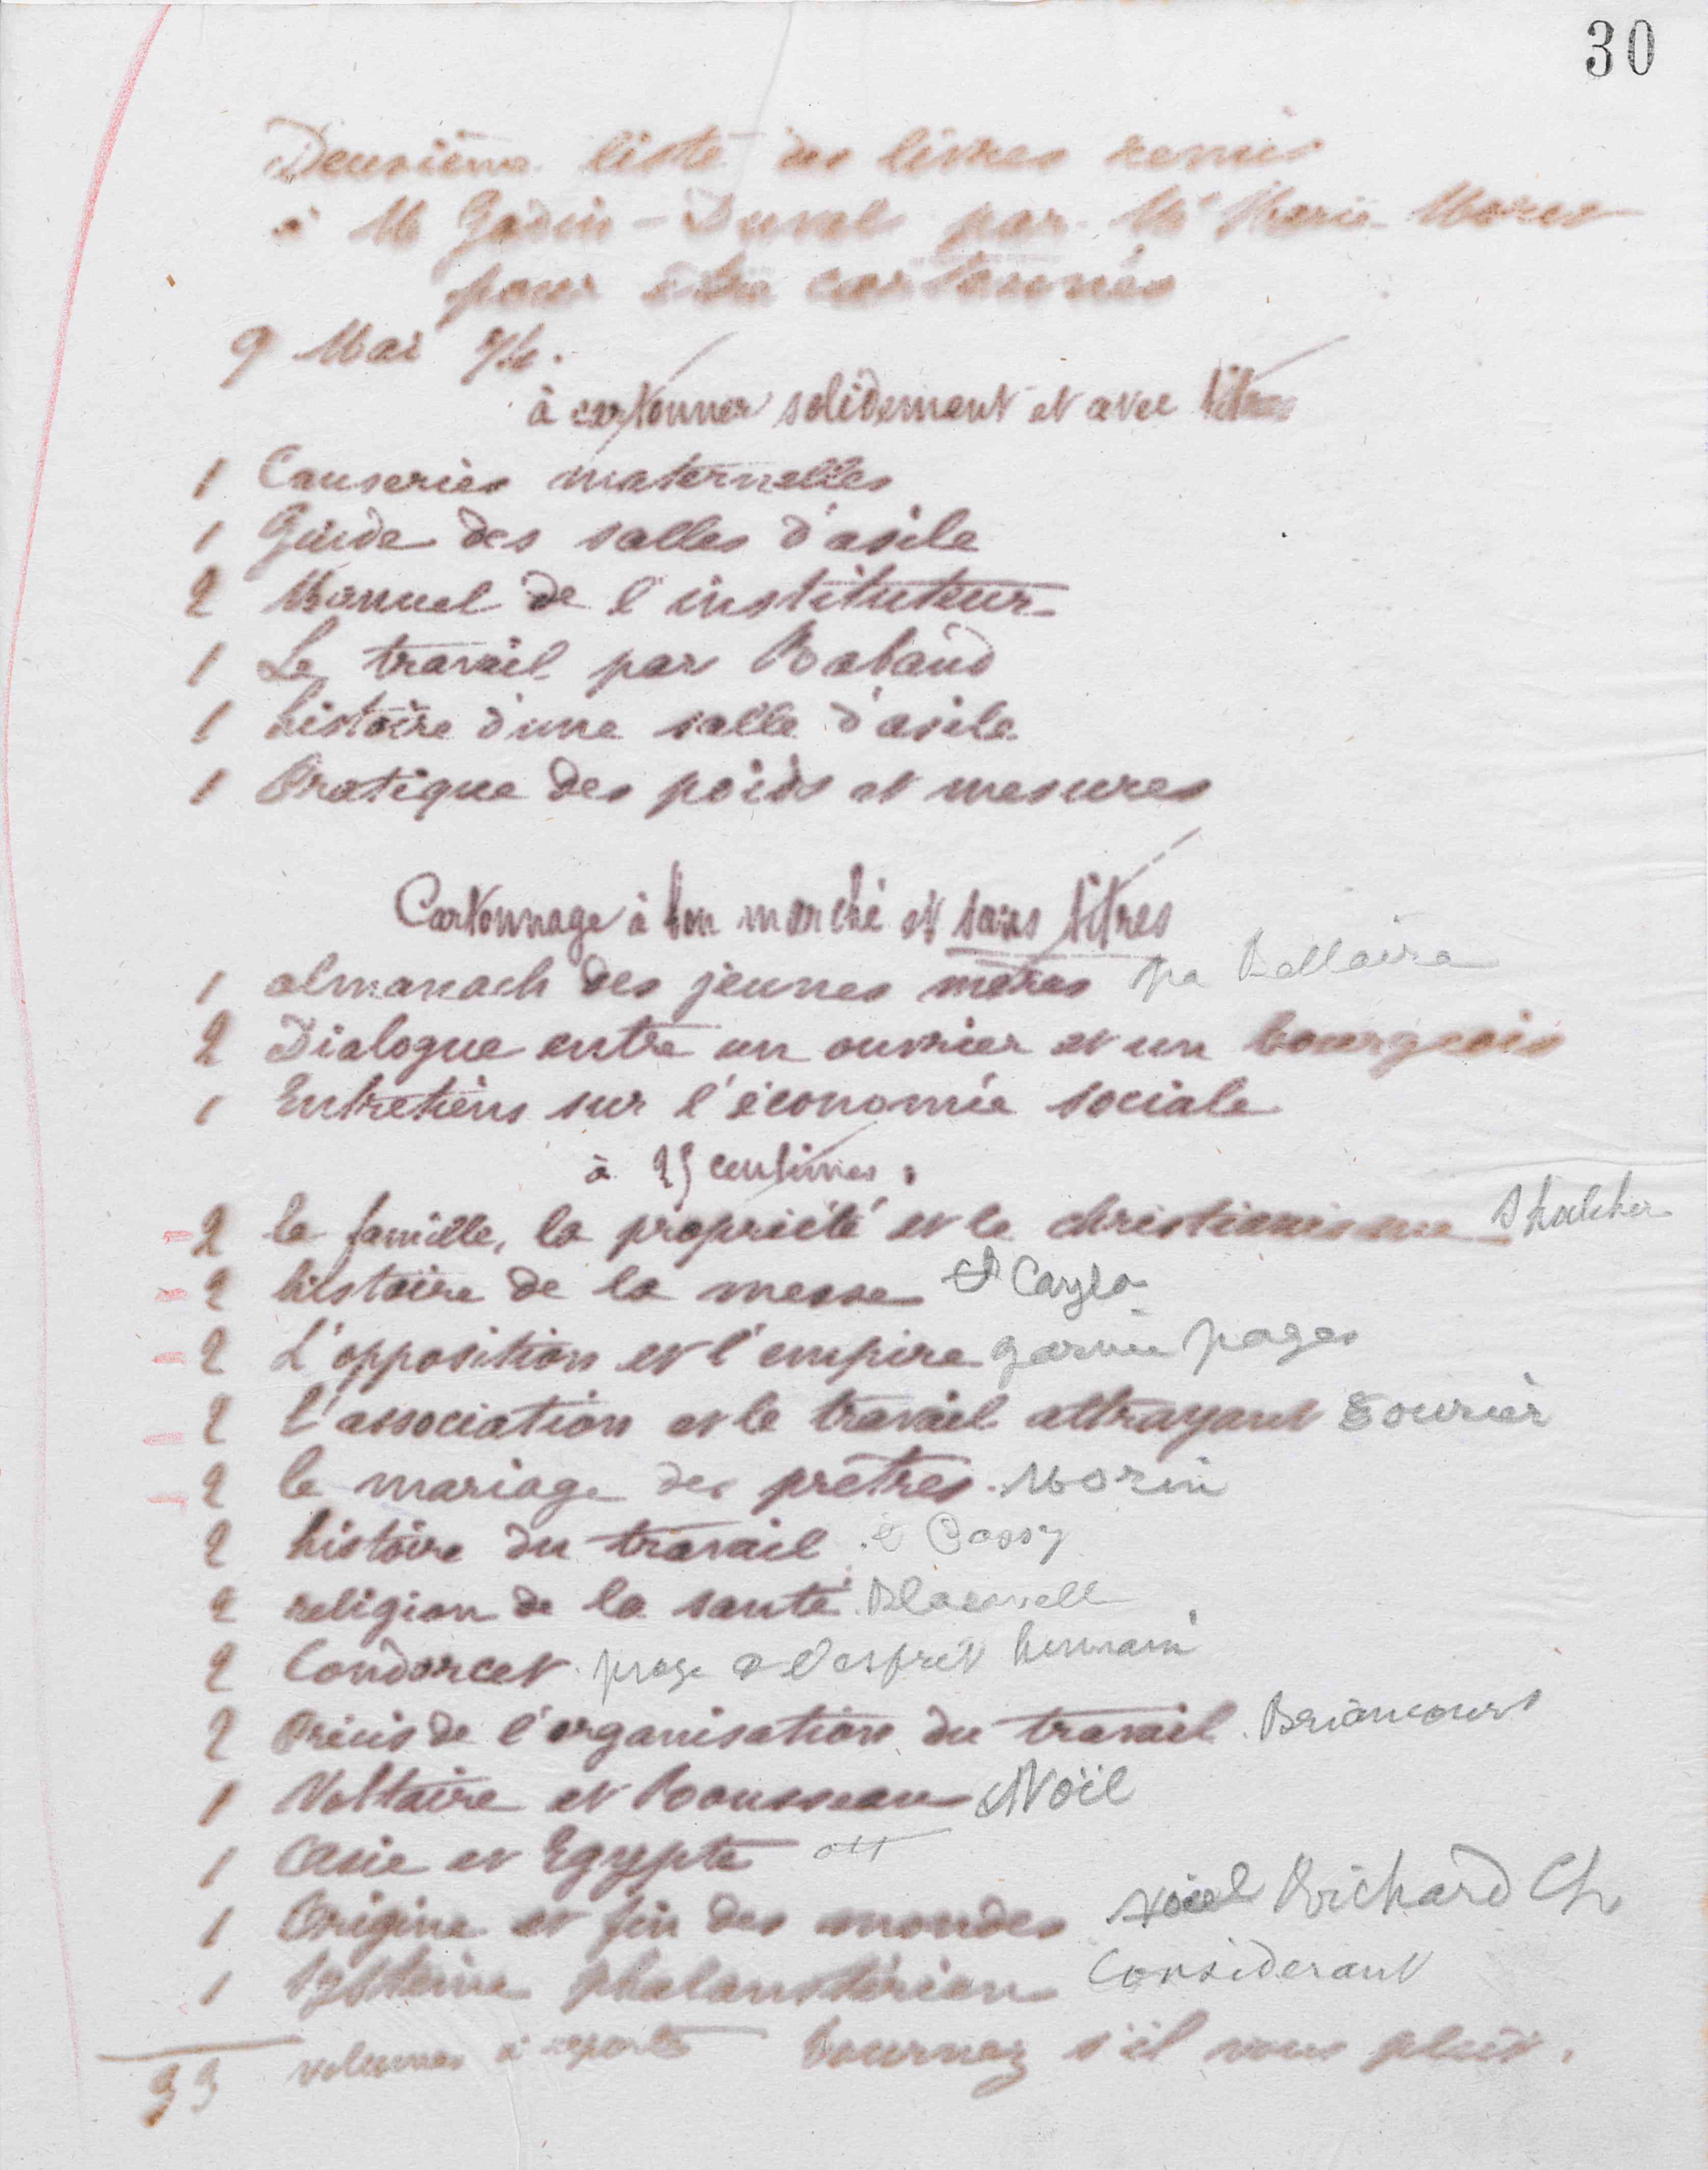 30
Deuxième liste des livres remis
à M Gadin-Duval par Me Marie Moret
pour être cartonnés
9 Mai 74.
à cartonner solidement et avec titres
1 Causeries maternelles
1 Guide des salles d'asile
2 Manuel de l'instituteur
1 Le travail par Rabaud
1 histoire d'une salle d'asile
1 Pratique des poids et mesures
Cartonnage à bon marché et sans titres
1 almanach des jeunes mères pa Bellaire
2 Dialogue entre un ouvrier et un bourgeois
1 Entretiens sur l'économie sociale
à 25 centimes.
2 la famille, la propriété et le christianisme
2 histoire de la messe Cayla
2 L'opposition et l'empire garnier pages
2 L'association et le travail attrayant Fourier
2 le mariage des prêtres. Morin
2 histoire du travail
2 religion de la santé
2 Condorcet. prog de l'esprit humain
2 Précis de l'organisation du travail. Briancourt
1 Voltaire et Rousseau Noël
1 Asie et Egypte ott
1 Origine et fin des mondes Richard Ch
1 Système phalanstérien Considerant
33 volumes à reporter tournez s'il vous plait.